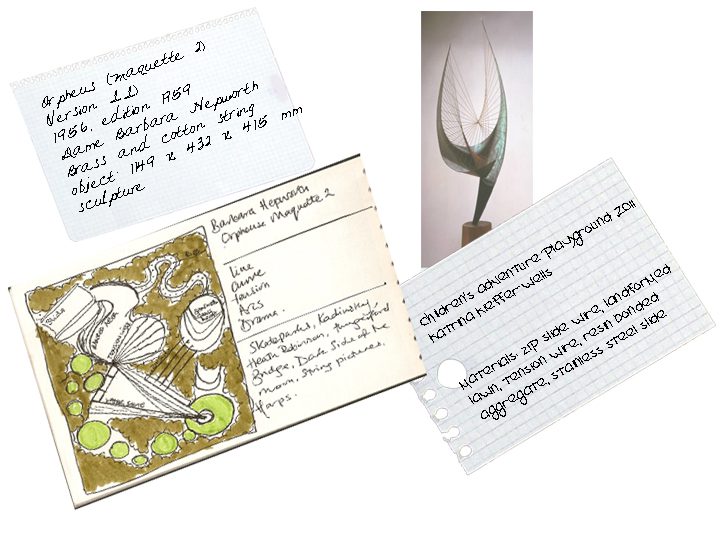 Orpheus (maquette 2)
Version II)
1956, edition 1959
Dame Barbara Hepworth
Brass and cotton string
object: 1149 x 432 x 415 mm
sculpture
Barbara Hepworth
Orpheuse Maquette 2
Line
Curve
Tension
Arcs
Drama.
Skateparks, Kadinsky,
Heath Robinson, Hungerford
Bridge, Dark Side of the
moon, String pictures,
Harps.
Slide
Children's Adventure Playground 2011
Katrina Kieffer-Wells
Materials: zip slide wire, landformed
lawn, tension wire, resin bonded
aggregate, stainless steel slide